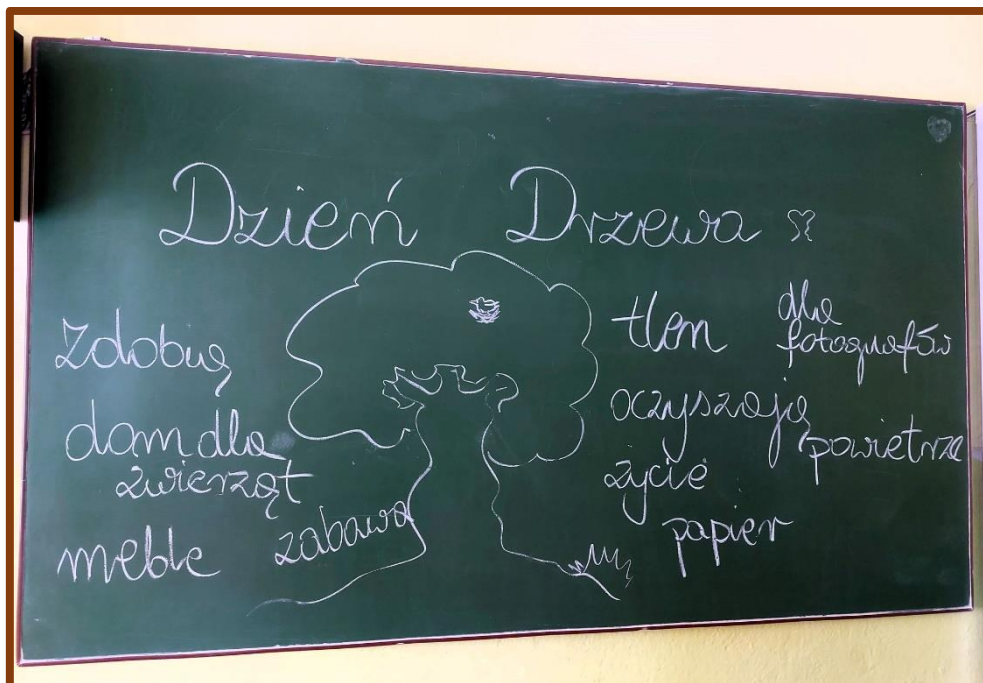 Dzień Drzewa
zdobią
dom dla
zwierząt
meble
zabawa
tlen
dla
fotografów
oczyszają
powietrze
życie
papier